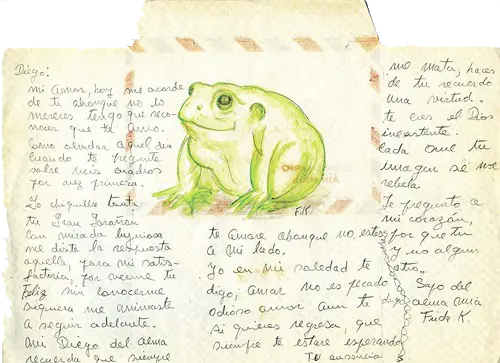 Diego:
Mi amor, hoy me acorde
de ti ahonque no lo
mereces tengo que reco-
nocer que te amo.
Como olvidar aquel día
cuando te pregunte
sobre mis cuadros
por vez primera.
Yo chiquilla tonta
tu Gran Señorón
con mirada lujuriosa
me diste la respuesta
aquella, para mi satis-
factoria, por verme tu
Feliz sin conocerme
siquiera me animaste
a seguir adelante.
Mi Diego del alma
recuerda que siempre
F.K
te amaré ahonque no estes
a mi lado.
Yo en mi soledad te
digo, amar no es pecado
odioso amor aun te digo
si quieres regresa, que
siempre te estare esperando
Tu ausencia
me mata, haces
de tu recuerdo
una virtud.
te eres el Dios
inexistente.
Cada que tu
imagen se me
rebela.
Le pregunto a
mi corazón,
por que tu
y no algun
otro.
Sapo del
alma mia
Frida K.